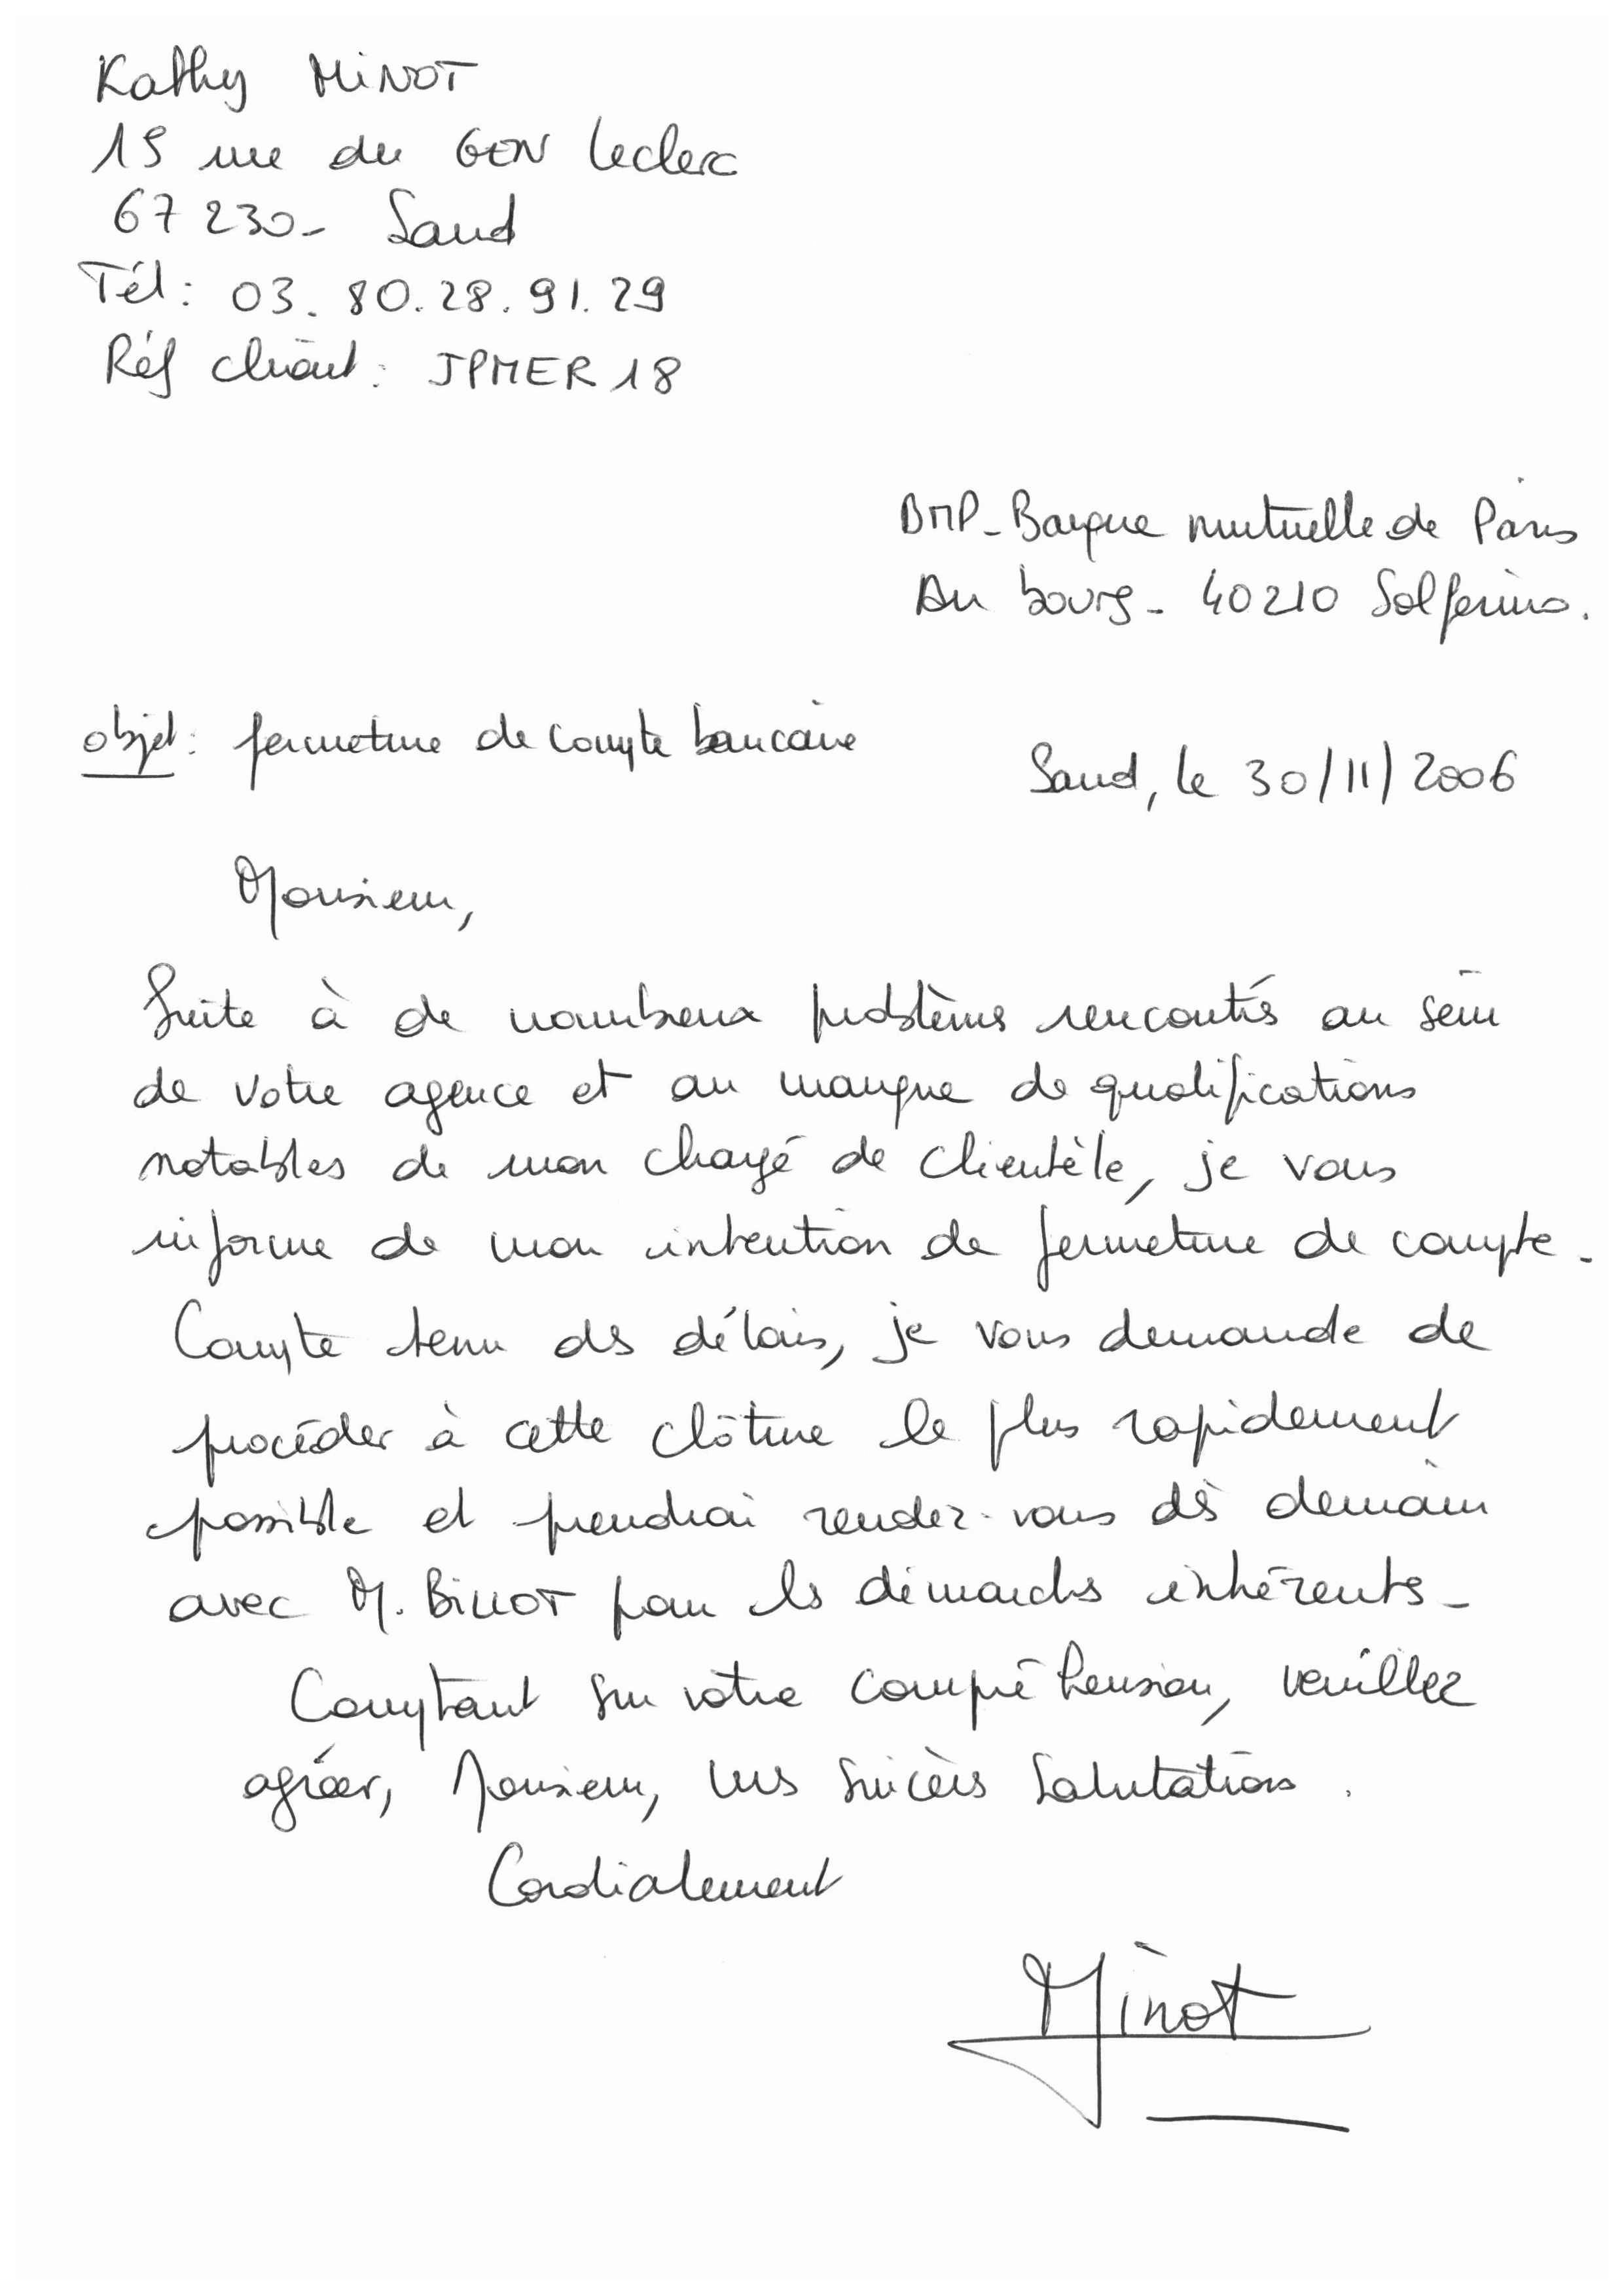 Kathy MINOT
19 rue du GEN Leclerc
67 230 - Sand
Tél : 03. 80. 28. 91. 29
Réf client : JPMER 18
BMP - Banque mutuelle de Paris
Au bourg - 40210 Solferino.
objet : fermeture de compte bancaire
Sand, le 30/11/2006
Monsieur,
Suite à de nombreux problèmes rencontrés au sein
de votre agence et au manque de qualifications
notables de mon chargé de clientèle, je vous
informe de mon intention de fermeture de compte.
Compte tenu des délais, je vous demande de
procéder à cette clôture le plus rapidement
possible et prendrai rendez-vous dès demain
avec M. BILLOT pour les démarches inhérents.
Comptant sur votre compréhension, veuillez
agréer, Monsieur, mes sincères salutations.
Cordialement
Minot